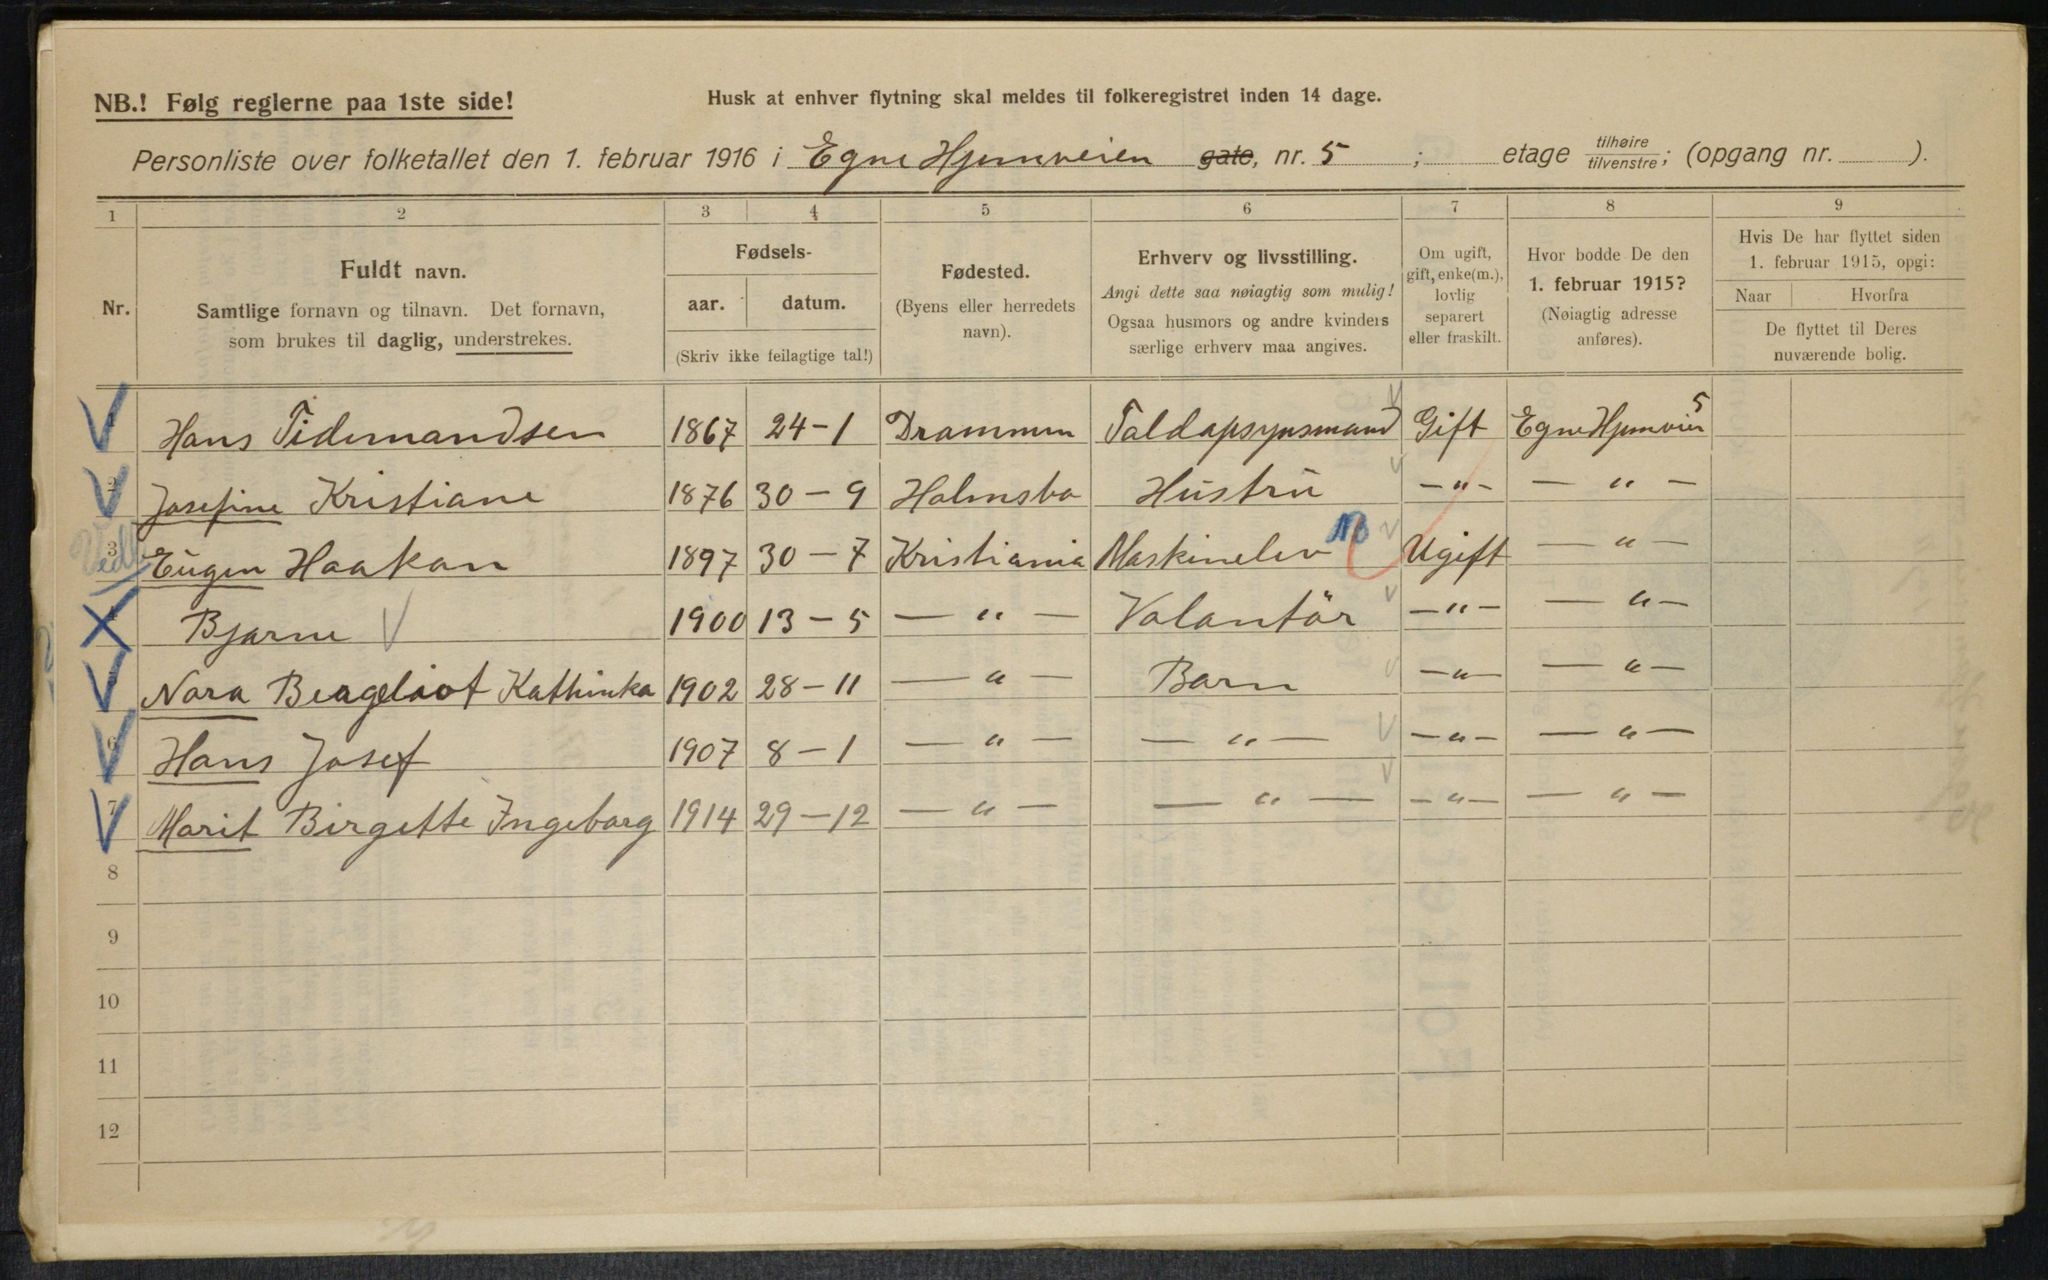 NB.! Følg reglerne paa 1ste side!
Husk at enhver flytning skal meldes til folkeregistret inden 14 dage.
Personliste over folketallet den 1. februar 1916 i Egne Hjemveien gate, nr. 5 ; etage tilhøire tilvenstre; (opgang nr. ).
1 2 3 4 5 6 7 8 9
Nr.
Fuldt navn.
Samtlige fornavn og tilnavn. Det fornavn,
som brukes til daglig, understrekes.
Fødsels-
aar. datum.
(Skriv ikke feilagtige tal!)
Fødested.
(Byens eller herredets
navn).
Erhverv og livsstilling.
Angi dette saa nøiagtig som mulig!
Ogsaa husmors og andre kvinders
særlige erhverv maa angives.
Om ugift,
gift, enke(m.),
lovlig
separert
eller fraskilt.
Hvor bodde De den
1. februar 1915?
(Nøiagtig adresse
anføres).
Hvis De har flyttet siden
1. februar 1915, opgi:
Naar Hvorfra
De flyttet til Deres
nuværende bolig.
Hans Tidemandsen 1867 24-1 Drammen Toldopsynsmand Gift Egne Hjemveien 5
2 Josefine Kristiane 1876 30-9 Holmsbo Hustru -"- -"-
3 Eugen Haakon 1897 30-7 Kristiania Maskinelev Ugift -"-
Bjarne 1900 13-5 -"- Volantör -"- -"-
Nora Bergeliot Kathinka 1902 28-11 -"- Barn -"- -"-
6 Hans Josef 1907 8-1 -"- -"- -"- -"-
7 Marit Birgette Ingeborg 1914 29-12 -"- -"- -"- -"-
8
9
10
11
12